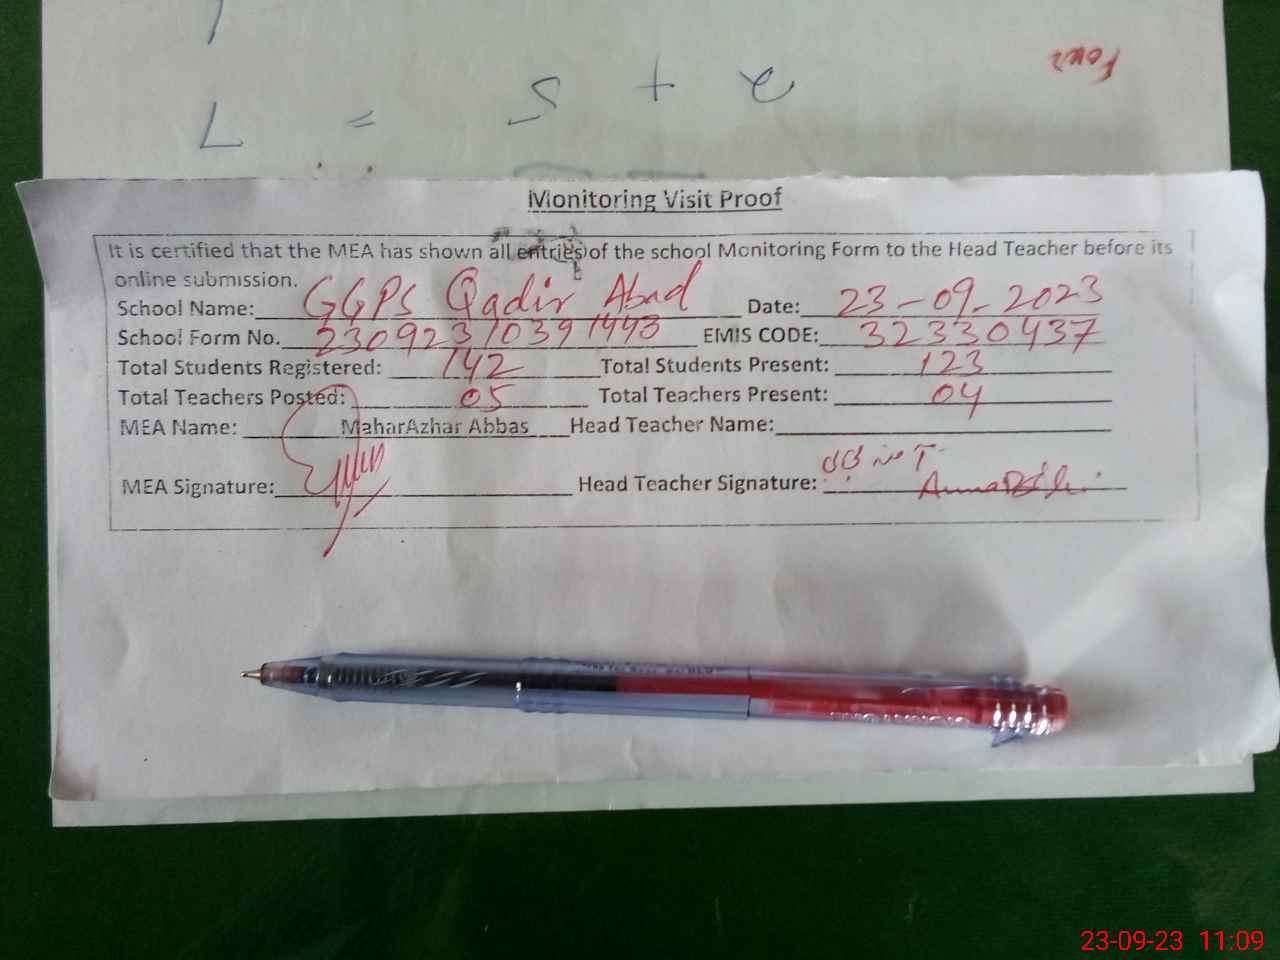 Four
7 = 5 + 2
Monitoring Visit Proof
It is certified that the MEA has shown all entries of the school Monitoring Form to the Head Teacher before its
online submission.
School Name: GGPS Qadir Abad Date: 23-09-2023
School Form No. 2309231039 1443 EMIS CODE: 32330437
Total Students Registered: 142 Total Students Present: 123
Total Teachers Posted: 05 Total Teachers Present: 04
MEA Name: MaharAzhar Abbas Head Teacher Name:
MEA Signature: Head Teacher Signature:
23-09-23 11:09